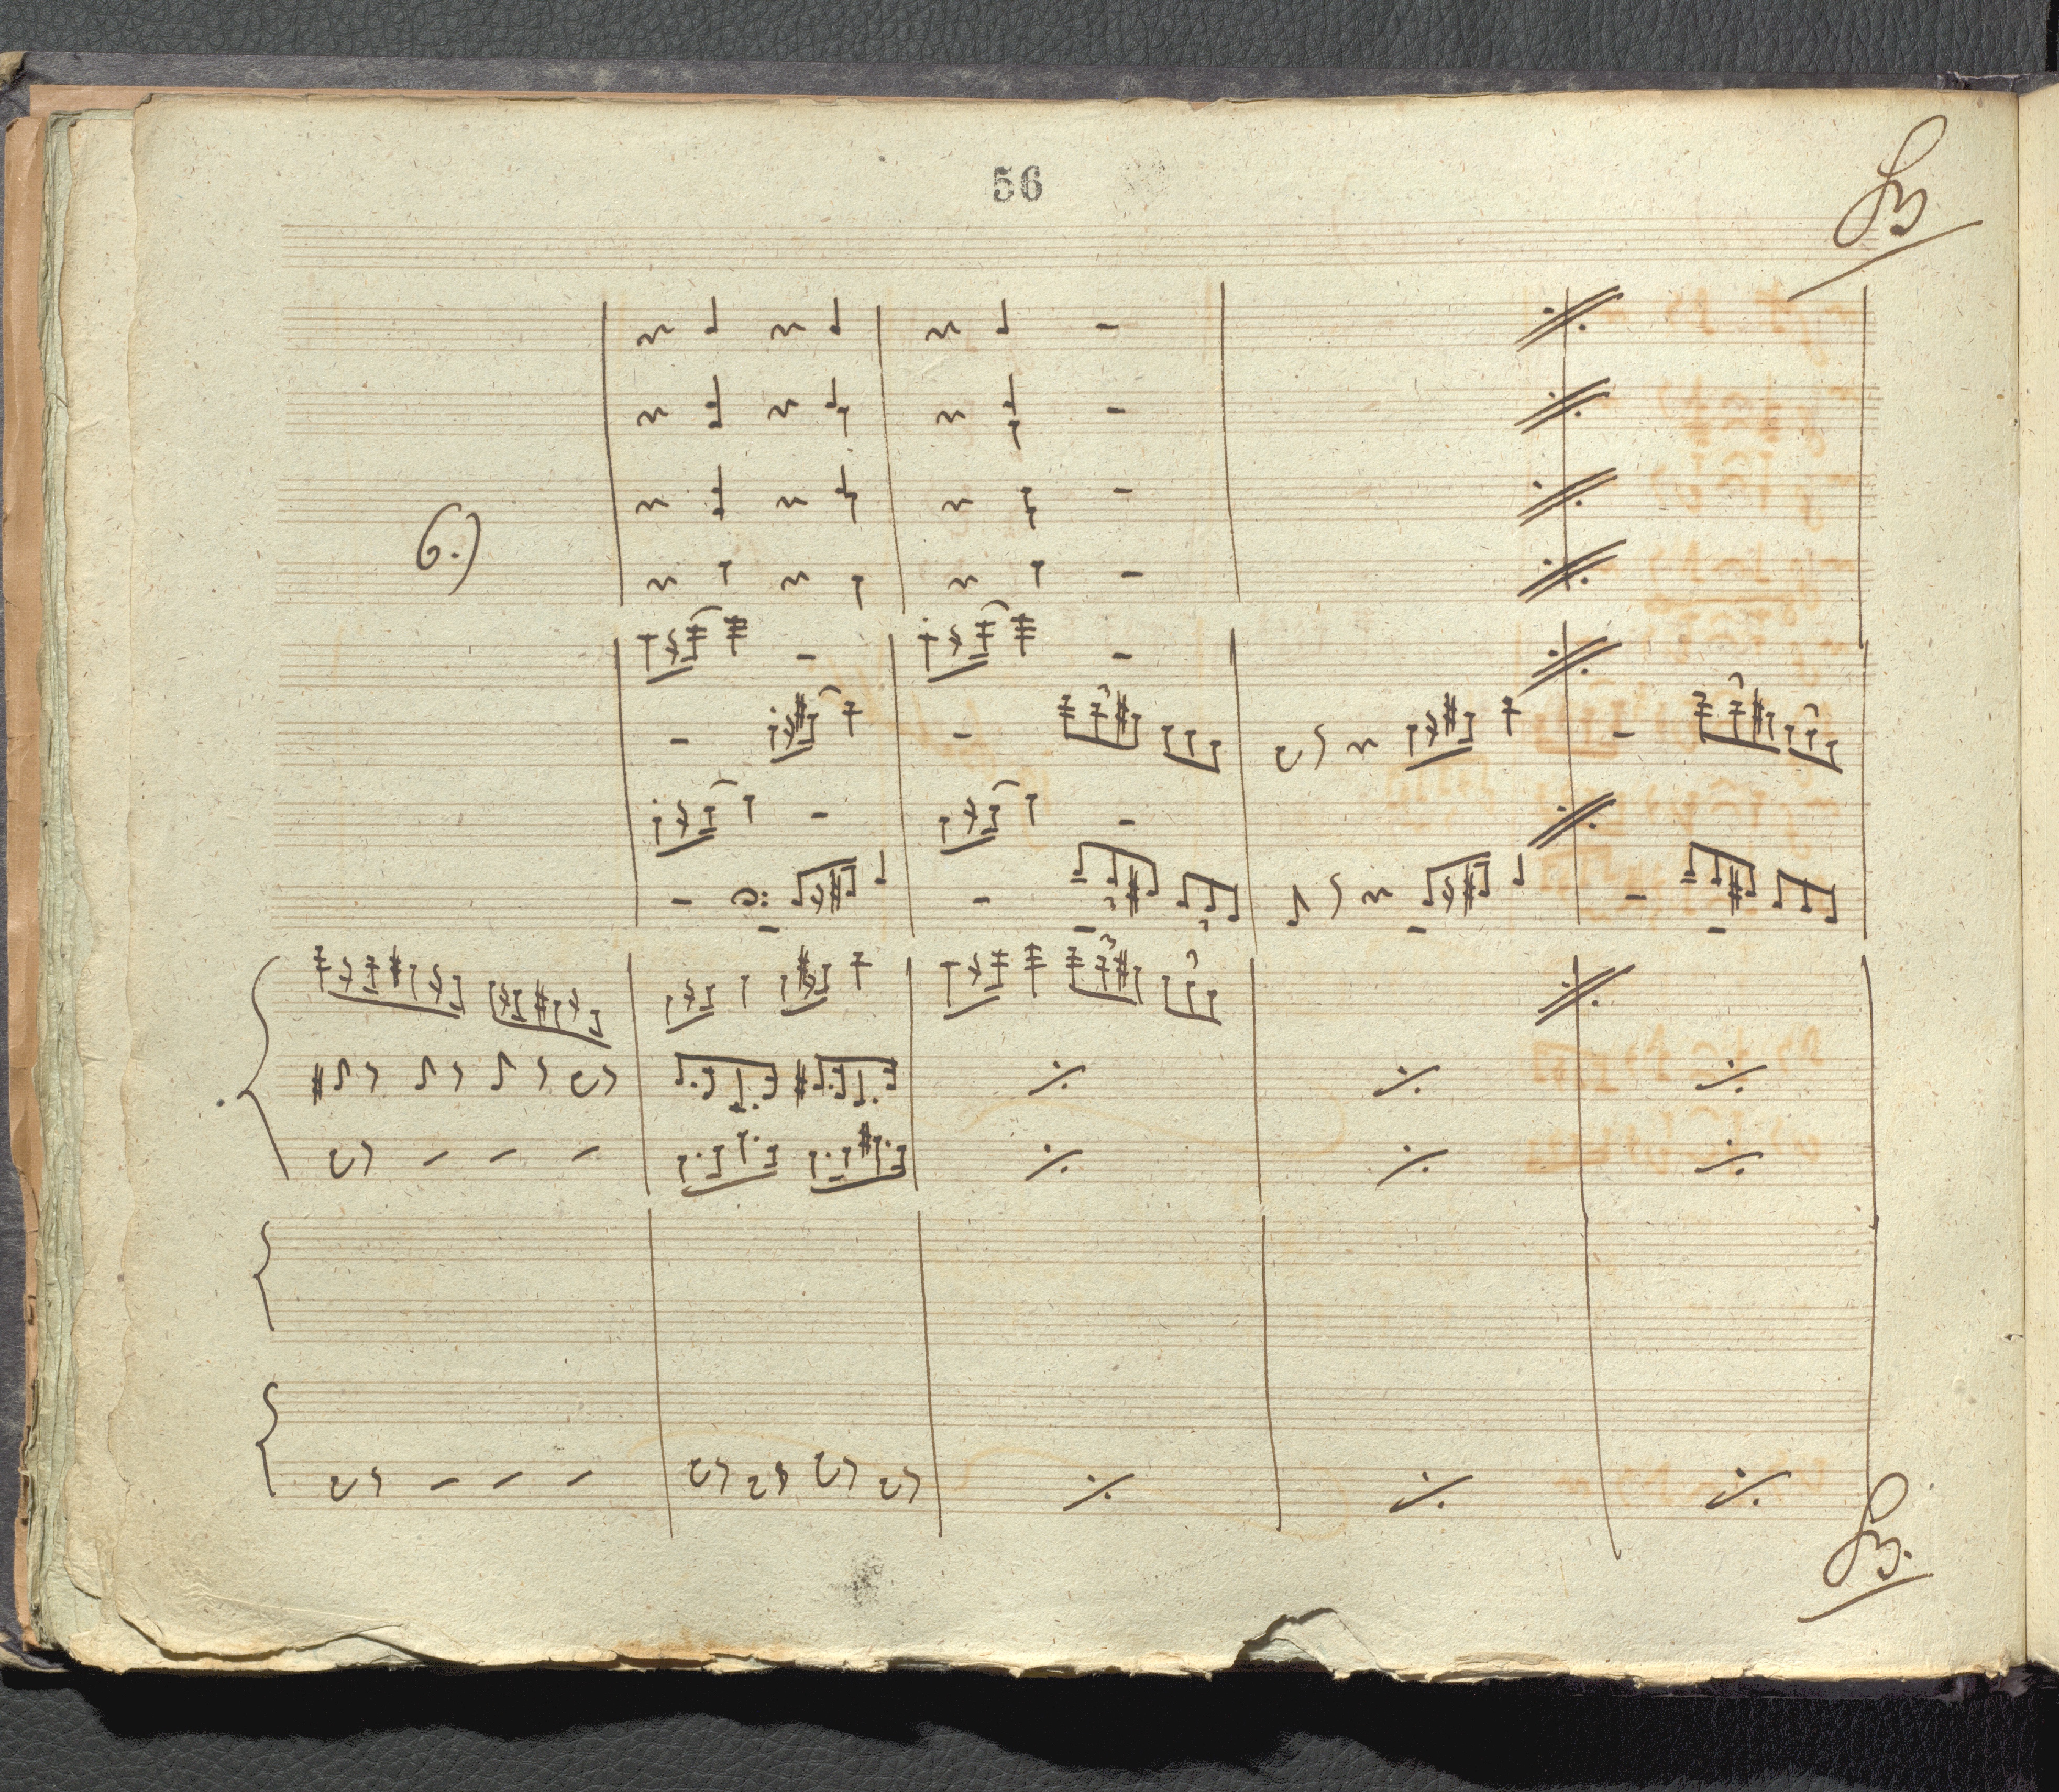 56
6.)